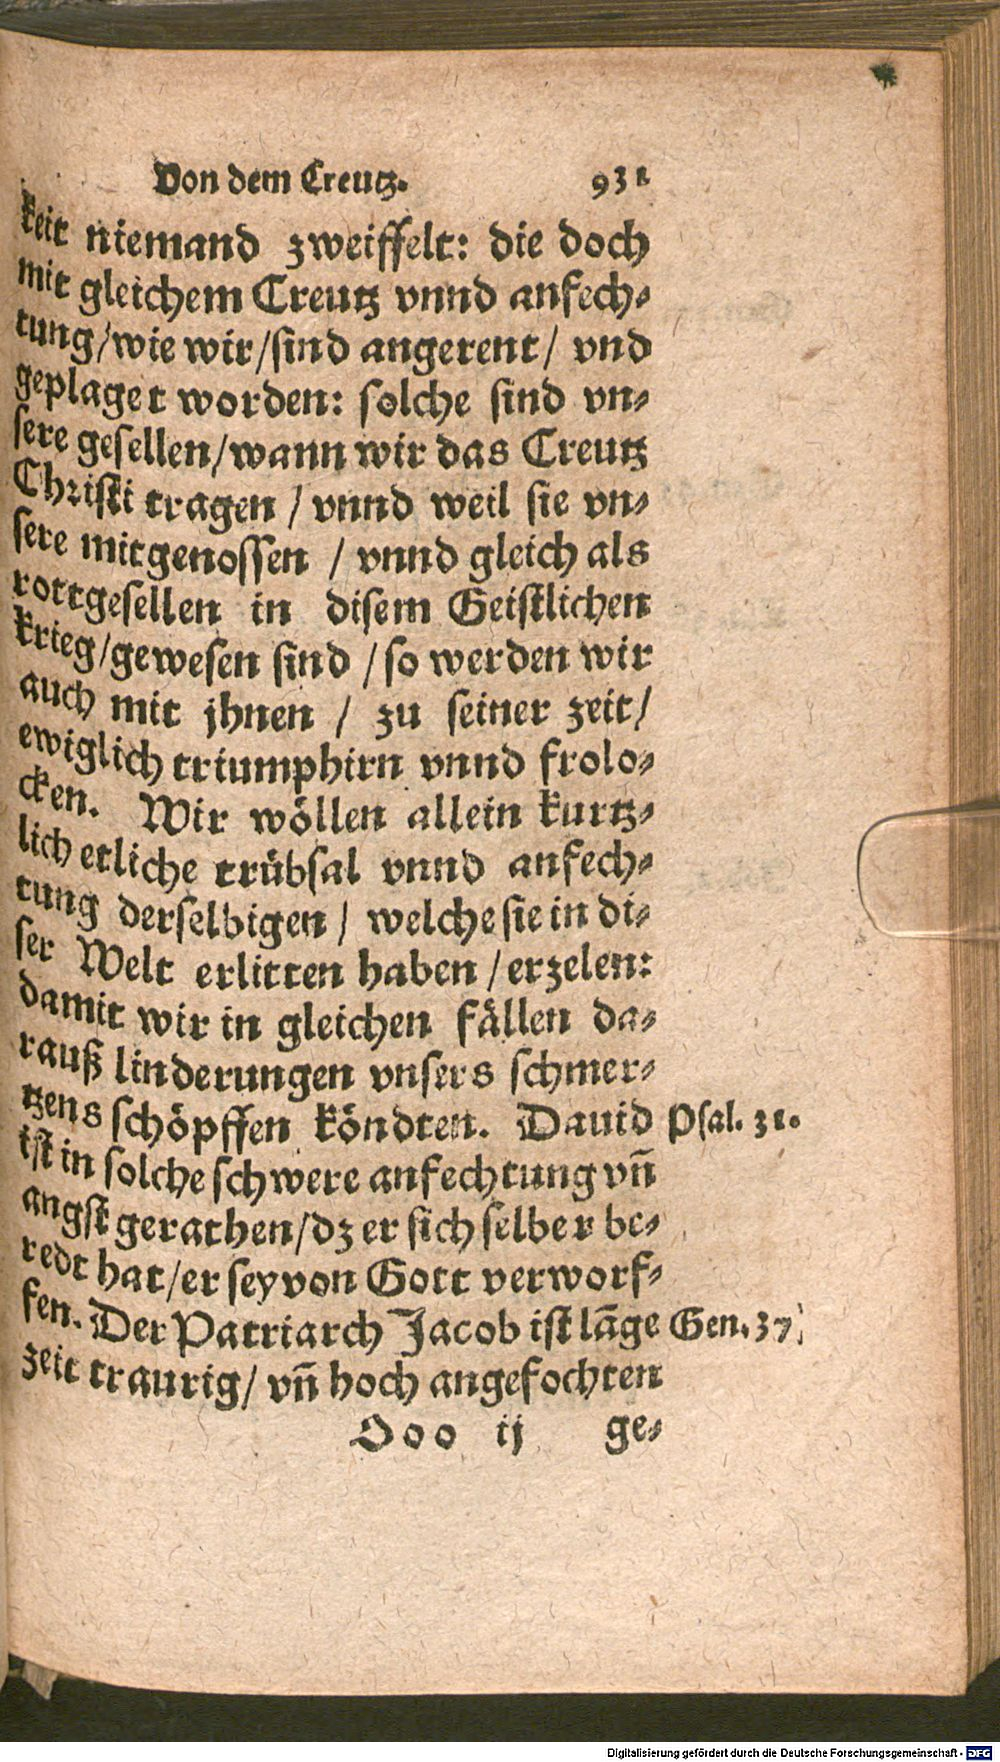 Von dem Creutz. 931
keit niemand zweiffelt: die doch
mit gleichem Creutz vnnd anfech-
tung/wie wir/sind angerent/ vnd
geplaget worden: solche sind vn-
sere gesellen/wann wir das Creutz
Christi tragen / vnnd weil sie vn-
sere mitgenossen / vnnd gleich als
rottgesellen in disem Geistlichen
krieg/gewesen sind / so werden wir
auch mit jhnen / zu seiner zeit/
ewiglich triumphirn vnnd frolo-
cken. Wir wöllen allein kurtz-
lich etliche trübsal vnnd anfech-
tung derselbigen / welche sie in di-
ser Welt erlitten haben / erzelen:
damit wir in gleichen fällen da-
rauß linderungen vnsers schmer-
tzens schöpffen köndten. Dauid Psal. 31.
ist in solche schwere anfechtung vñ
angst gerathen/dz er sich selber be-
redt hat/er sey von Gott verworf-
fen. Der Patriarch Jacob ist lãge Gen. 37
zeit traurig/ vñ hoch angefochten
Ooo ij ge-
Digitalisierung gefördert durch die Deutsche Forschungsgemeinschaft - DFG